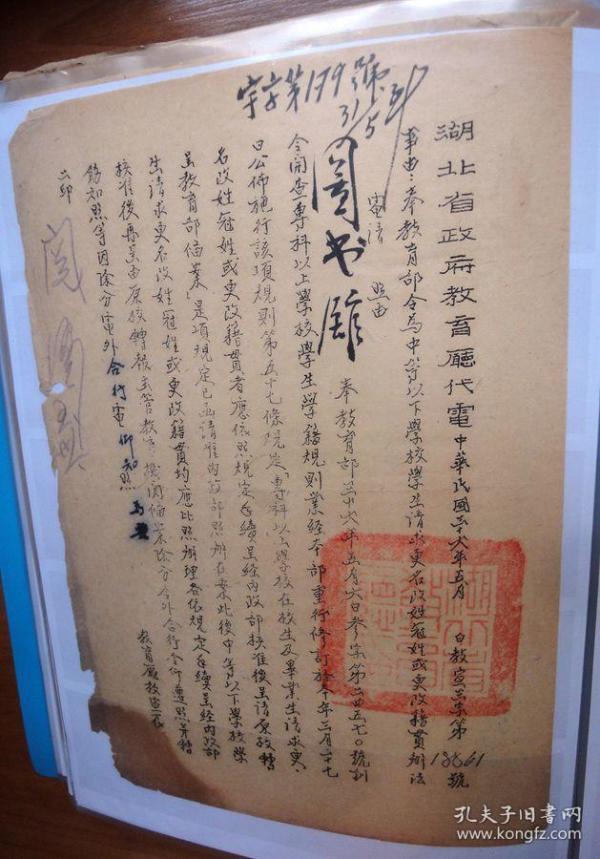 湖北省政府教育廳代電 中華民國三十六年五月 日教宣三字第18661號
事由：奉教育部令為中等以下學校學生請求更名改姓冠姓或更改籍貫辦法
電請 照由
宇字第179號
31/5
圖书館
奉教育部三十六年五月六日參字第二四五七〇號訓
令開查專科以上學校學生學籍規則業經本部重行修訂於本年三月二十七
日公佈施行該項規則第五十七條規定專科以上學校在校生及畢業生請求更
名改姓冠姓或更改籍貫者應依照規定手續呈經內政部核准後呈請原校轉
呈教育部備案 是項規定已函請內政部照辦在案此後中等以下學校學
生請求更名改姓冠姓或更改籍貫均應比照辦理各依規定手續呈經內政部
核准後再呈由原校轉報主管教育機關備案除分令外合行令仰遵照并轉
飭知照等因除分電外合行電仰知照
教育廳教宣三
孔夫子旧书网
www.kongfz.com